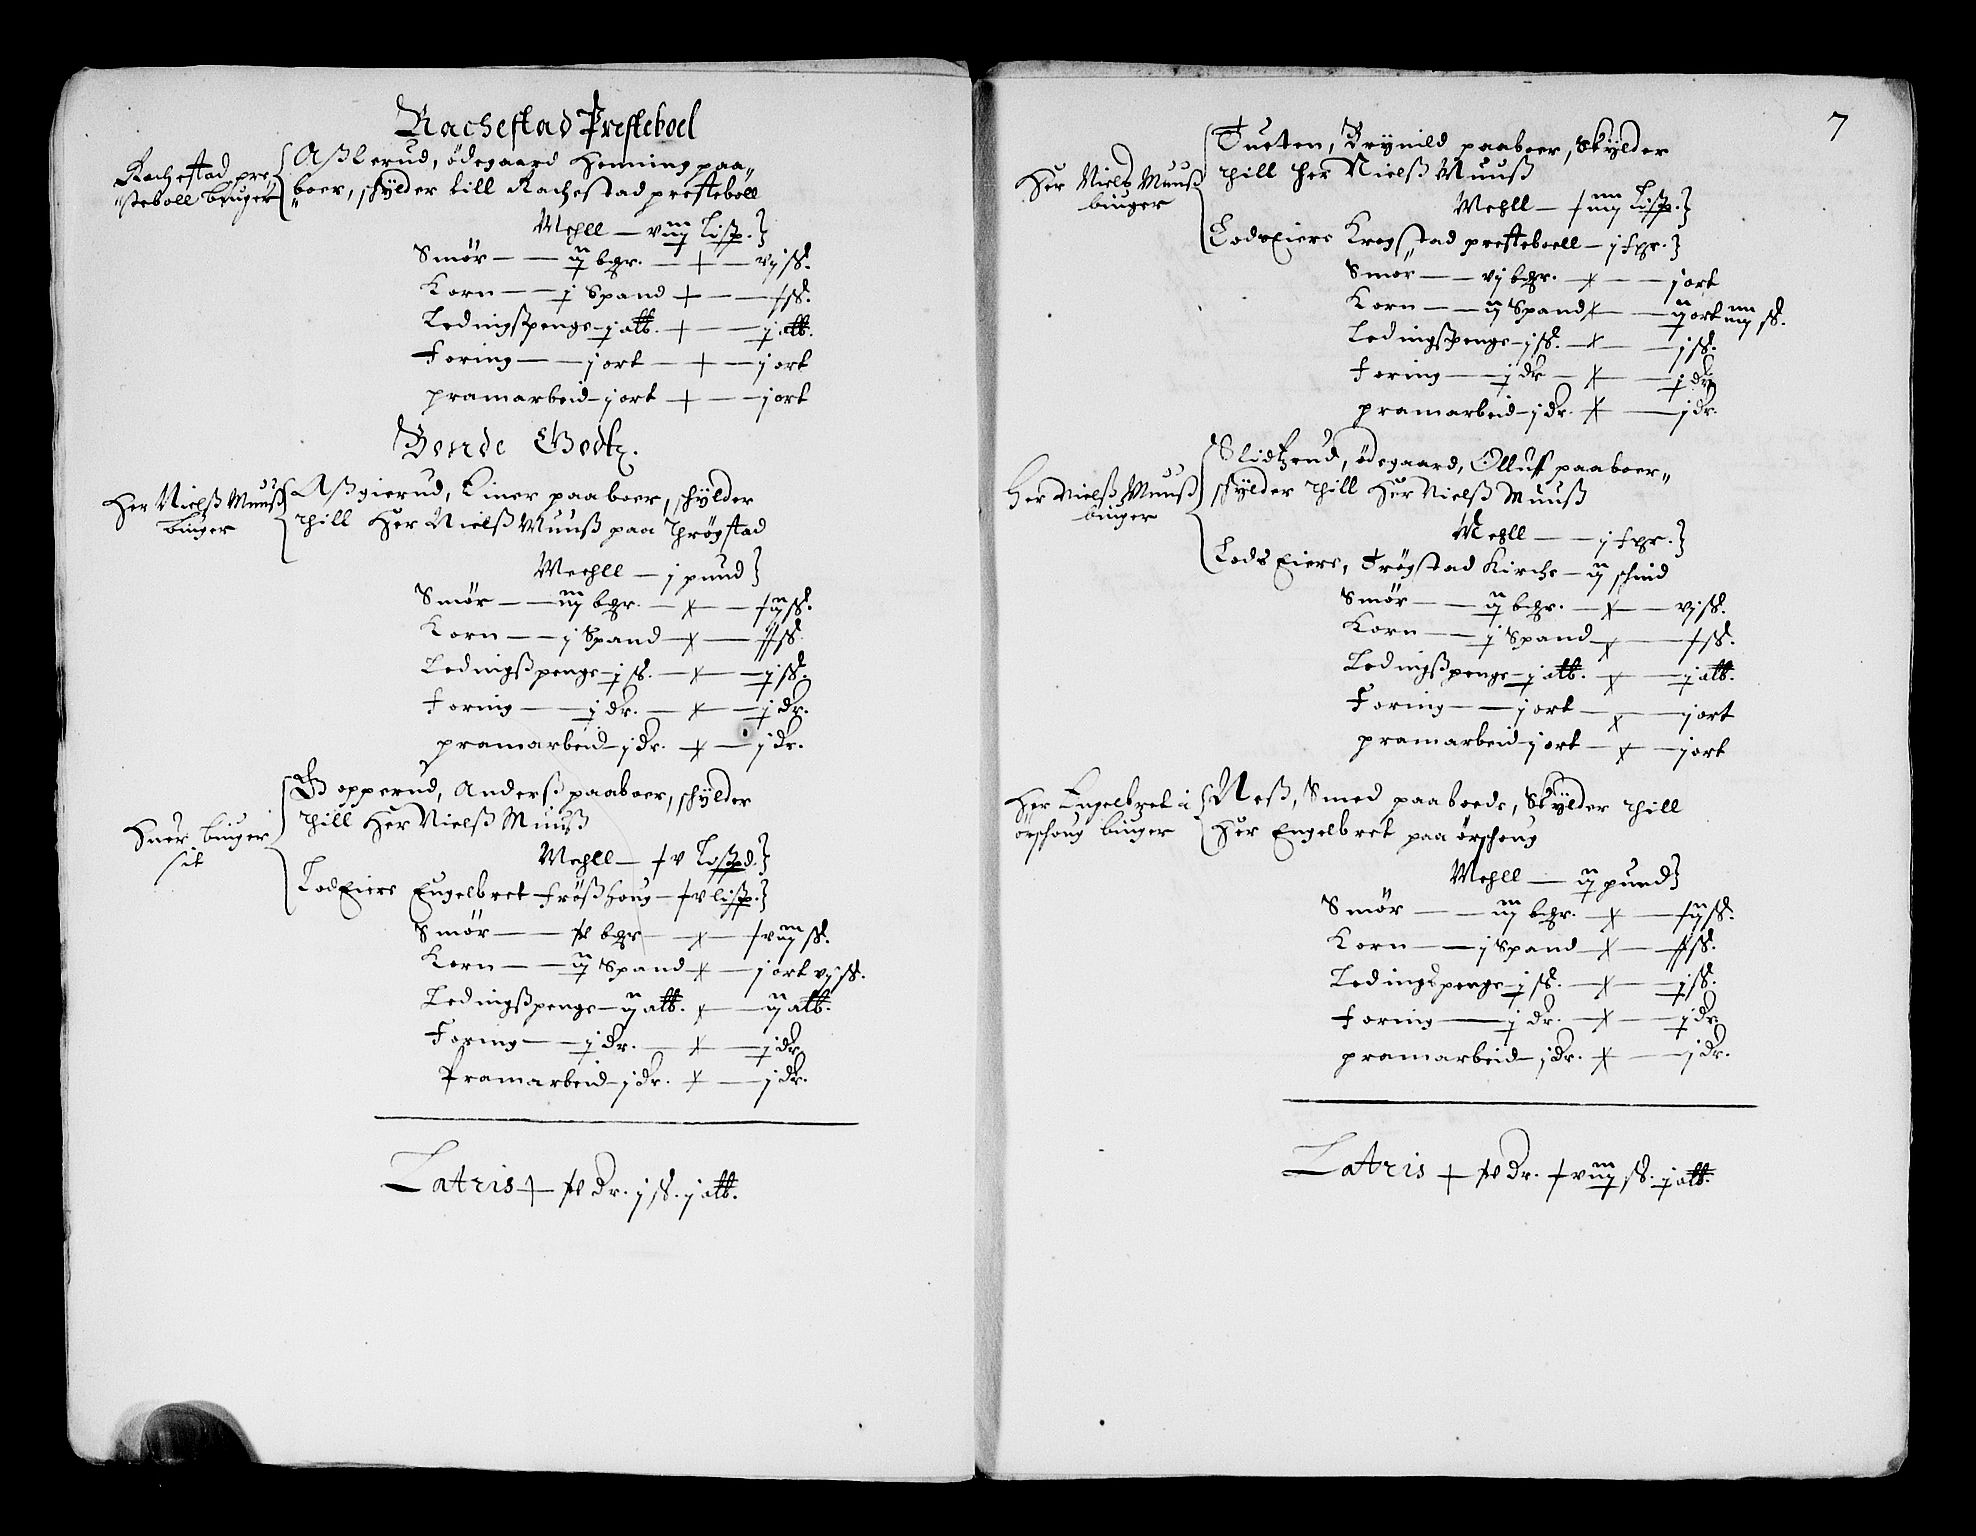 Rachestad Presteboel
Rachestad pre-
"steboll bruger
Aßlerud, ödegaard Henning paa"
"boer, skylder till Rachestad presteboll
Mehll — viij Lisp.
Smör — — ij bgr. — + — vj sß.
Korn — — j Spand + — — + sß.
Ledingßpenge — j alb. + — — j alb.
Foring — — j ort — + — j ort
pramarbeid — j ort + — — j ort
Bende Godtz.
Her Nielß Muuß
bruger
Aßgierud, Einer paaboer, schylder
thill Her Nielß Muuß paa Thrögstad
Meehll — j pund
Smör — — iij bgr. — x — — sß.
Korn — — j Spand — x — sß.
Ledingßpenge — j sß. — x — — j sß.
Foring — — j dr. — x — — j dr.
pramarbeid — j dr. x — — j dr.
Huer bruger
sit
Gopperud, Anderß paaboer, schylder
thill Her Nielß Muuß
Mehll — + v Lißpd.
LodEiere Engelbret Frößhoug — + v lisp.
Smör — — bgr — x — + viij sß.
Korn — — ij Spand — x — j ort vj sß.
Ledingßpenge — ij alb. x — — ij alb.
Foring — — j dr. — x — — j dr.
Pramarbeid — j dr. x — — j dr.
Latris + dr. j sß. j alb.
7
Her Nielß Muuß
bruger
Tueten, Brynild paaboer, Skylder
thill Her Nielß Muuß
Mehll — + iiij Lisp.
LodsEiere Krogstad presteboell — j fgr.
Smör — — vj bgr. — x — — j ort
Korn — — ij Spand x — — ij ort iiij sß.
Ledingßpenge — j sß. — x — — j sß.
Foring — — j dr — x — — j dr
pramarbeid — j dr. x — — j dr.
Her Nielß Muuß
bruger
Slidtzrud, ödegaard, Olluff paaboer"
schylder thill Her Nielß Muuß
Mehll — — j fgr.
Lods Eiere, Trögstad Kirche — ij schind
Smör — — ij bgr. — x — — vj sß.
Korn — — j Spand — x — — + sß.
Ledingßpenge — j alb. — x — — j alb.
Foring — — j ort — x — — j ort
pramarbeid j ort — x — — j ort
Her Engelbret i
örschoug bruger
Neß, Smed paaboede, Skylder thill
Her Engelbret paa örschoug
Mehll — ij pund
Smör — — iij bgr. — x — — sß.
Korn — — j Spand — x — — sß.
Ledingspenge — j sß. — x — — j sß.
Foring — — j dr. — x — — j dr.
pramarbeid — j dr. x — — j dr.
Latris + dr. + viij sß. j alb.